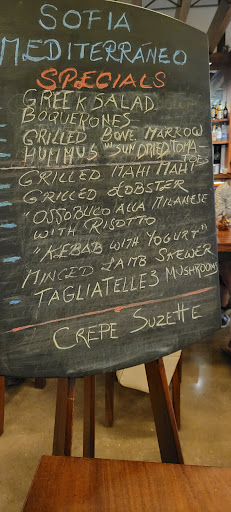 SOFIA
MEDITERRÁNEO
SPECIALS
GREEK SALAD
BOQUERONES
GRILLED BONE MARROW
HUMMUS W SUNDRIED TOMA-
TOES
GRILLED MAHI MAHI
GRILLED LOBSTER
"OSSOBUCO ALLA MILANESE
WITH RISOTTO
"KEBAB WITH YOGURT"
MINCED LAMB SKEWER
TAGLIATELLE 3 MUSHROOMS
CREPE SUZETTE